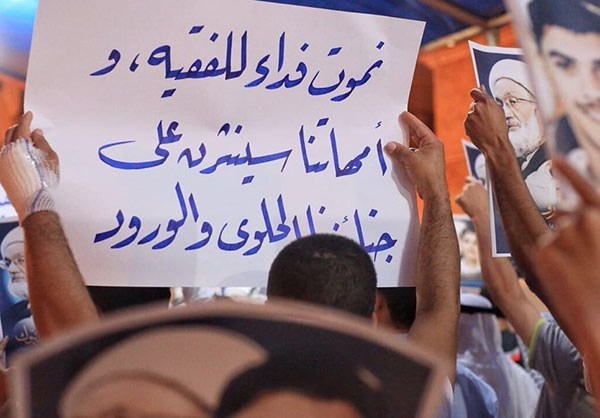 نموت فداء للفقيه، و
أمهاتنا سينثرن على
الحلوى والورود